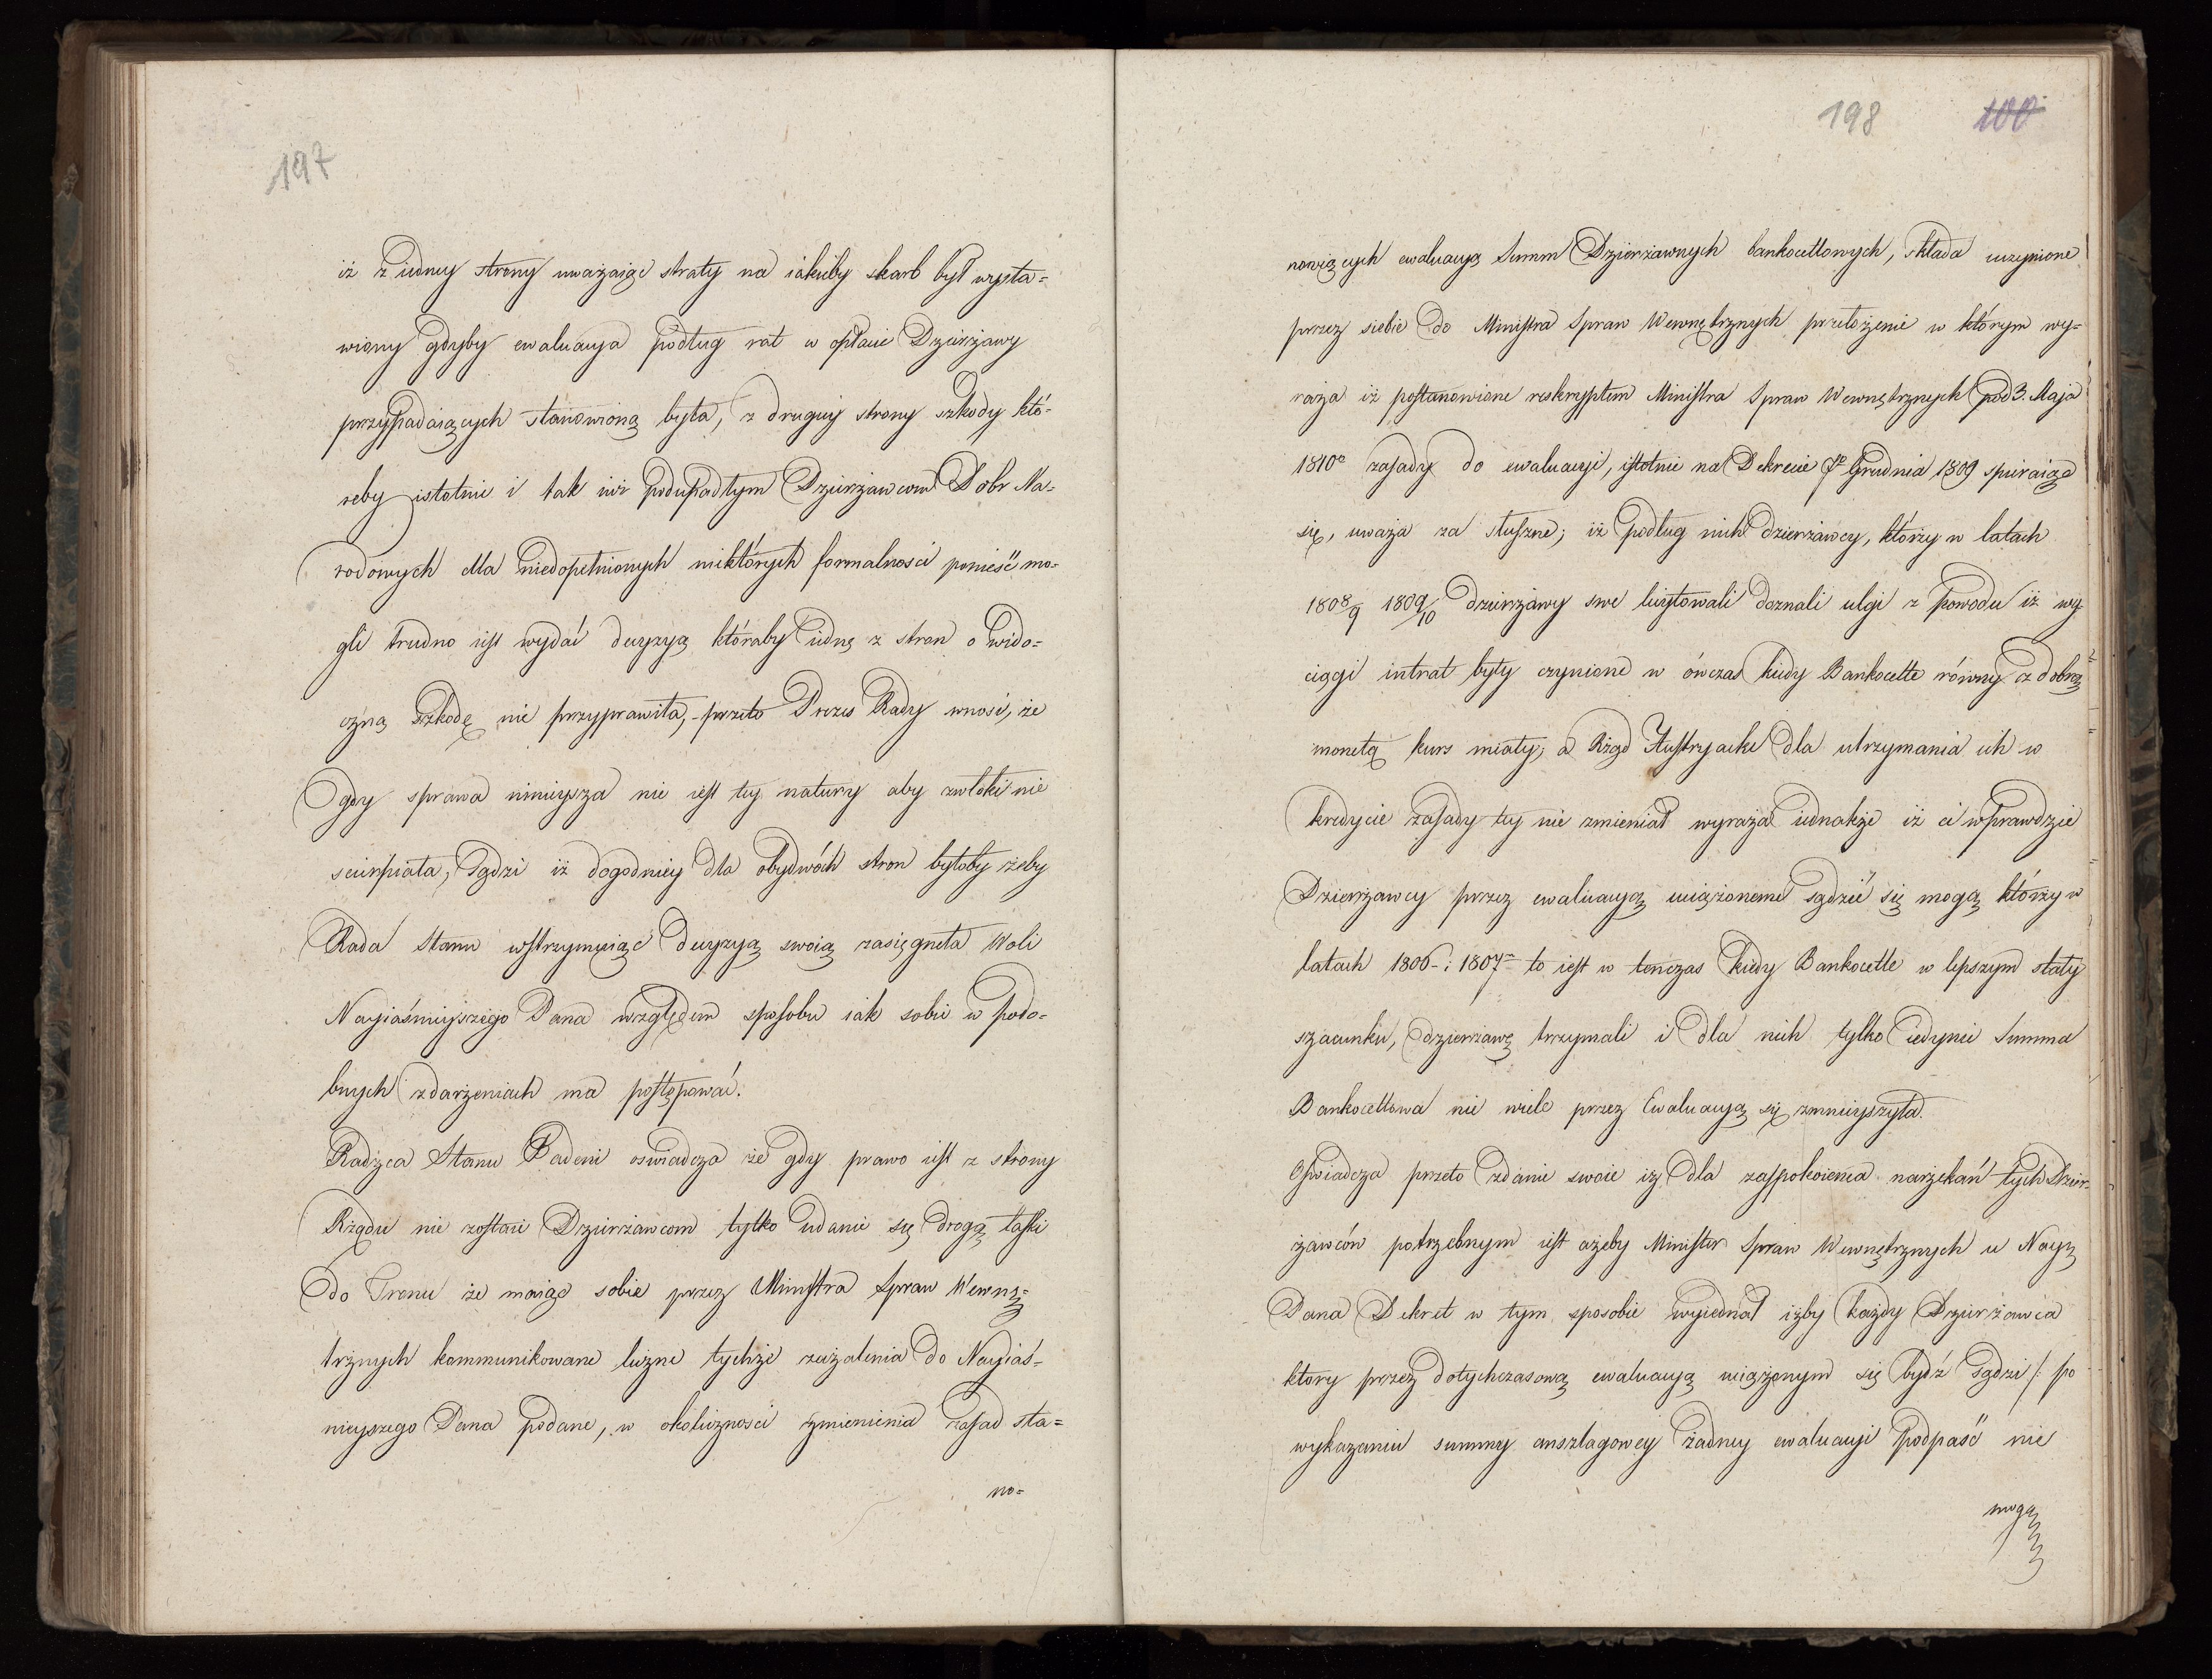 197
iż z iedney strony uważaiąc straty na iakieby skarb był wysta=
wiony gdyby ewaluacya podług rat w opłacie Dzierżawy
przypadaiących stanowioną była, z drugiey strony szkody któ-
reby istotnie i tak iuż podupadłym Dzierżawcom Dobr Na-
rodowych dla niedopełnionych niektórych formalności ponieść mo-
gli trudno iest wydać decyzyą któraby iedną z stron o wido=
czną szkodę nie przyprawiła, przeto Prezes Rady wnosi, że
gdy sprawa ninieysza nie iest tey natury aby zwłoki nie
scierpiała, sądzi iż dogodniey dla obydwóch stron byłoby żeby
Rada Stanu wstrzymuiąc decyzyą swoią zasięgnęła Woli
Nayiaśnieyszego Pana względem sposobu iak sobie w podo-
bnych zdarzeniach ma postępować.
Radzca Stanu Badeni oświadcza że gdy prawo iest z strony
Rządu nie zostaie Dzierżawcom tylko udanie się drogą łaski
do Tronu że maiąc sobie przez Ministra Spraw Wewnę=
trznych kommunikowane liczne tychże zażalenia do Nayiaś-
nieyszego Pana podane, w okoliczności zmienienia zasad sta=
no=
198 100
nowiących ewaluacyą Summ Dzierżawnych bankocetlowych, składa uczynione
przez siebie do Ministra Spraw Wewnętrznych przełożenie w którym wy=
raża iż postanowione reskryptem Ministra Spraw Wewnętrznych pod 3. Maja
1810º zasady do ewaluacyi, istotnie na Dekrecie 7º Grudnia 1809 spieraiące
się, uważa za słuszne; iż podług nich dzierżawcy, którzy w latach
1808/9 1809/10 dzierżawy swe licytowali doznali ulgi z powodu iż wy-
ciągi intrat były czynione w ówczas kiedy Bankocetle równy z dobrą
monetą kurs miały, a Rząd Austryacki dla utrzymania ich w
kredycie zasady tey nie zmieniał wyraża iednakże iż ci wprawdzie
Dzierżawcy przez ewaluacyą uciążonemi sądzić się mogą którzy w
latach 1806 i 1807 to iest w tenczas kiedy Bankocetle w lepszym stały
szacunku, dzierżawę trzymali i dla nich tylko iedynie Summa
Bankocetlowa nie wiele przez Ewaluacyą się zmnieyszyła.
Oświadcza przeto zdanie swoie iż dla zaspokoienia narzekań tych Dzier-
żawców potrzebnym iest ażeby Minister Spraw Wewnętrznych u Nayz
Pana Dekret w tym sposobie wyiednał iżby każdy Dzierżawca
ktory przez dotychczasową ewaluacyą uciążonym się bydź sądzi /: po
wykazaniu summy anszlagowey żadney ewaluacyi podpaść nie
mogą